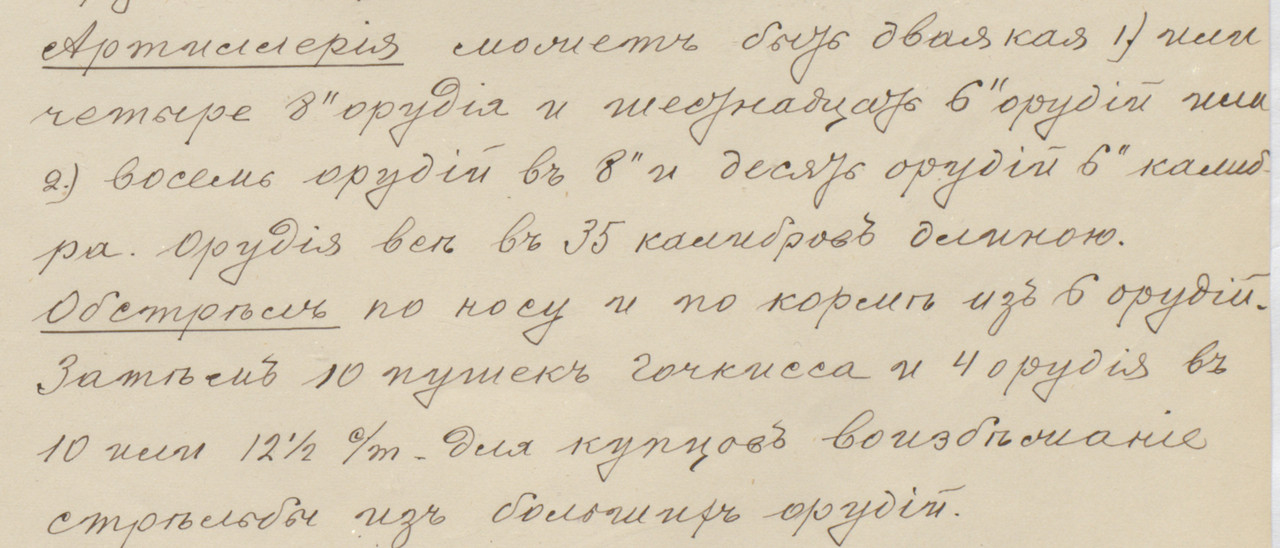 Артиллерія можетъ быть двалкая 1) или
четыре 8" орудія и шестнадцать 6" орудій или
2) восемь орудій въ 8" и десять орудій 6" калиб-
ра. Орудія всѣ въ 35 калибровъ длиною.
Обстрѣлъ по носу и по кормѣ изъ 6 орудій.
Затѣмъ 10 пушекъ Гочкисса и 4 орудія въ
10 или 12½ с/т - для купцовъ воизбѣжаніе
стрѣльбы изъ большихъ орудій.